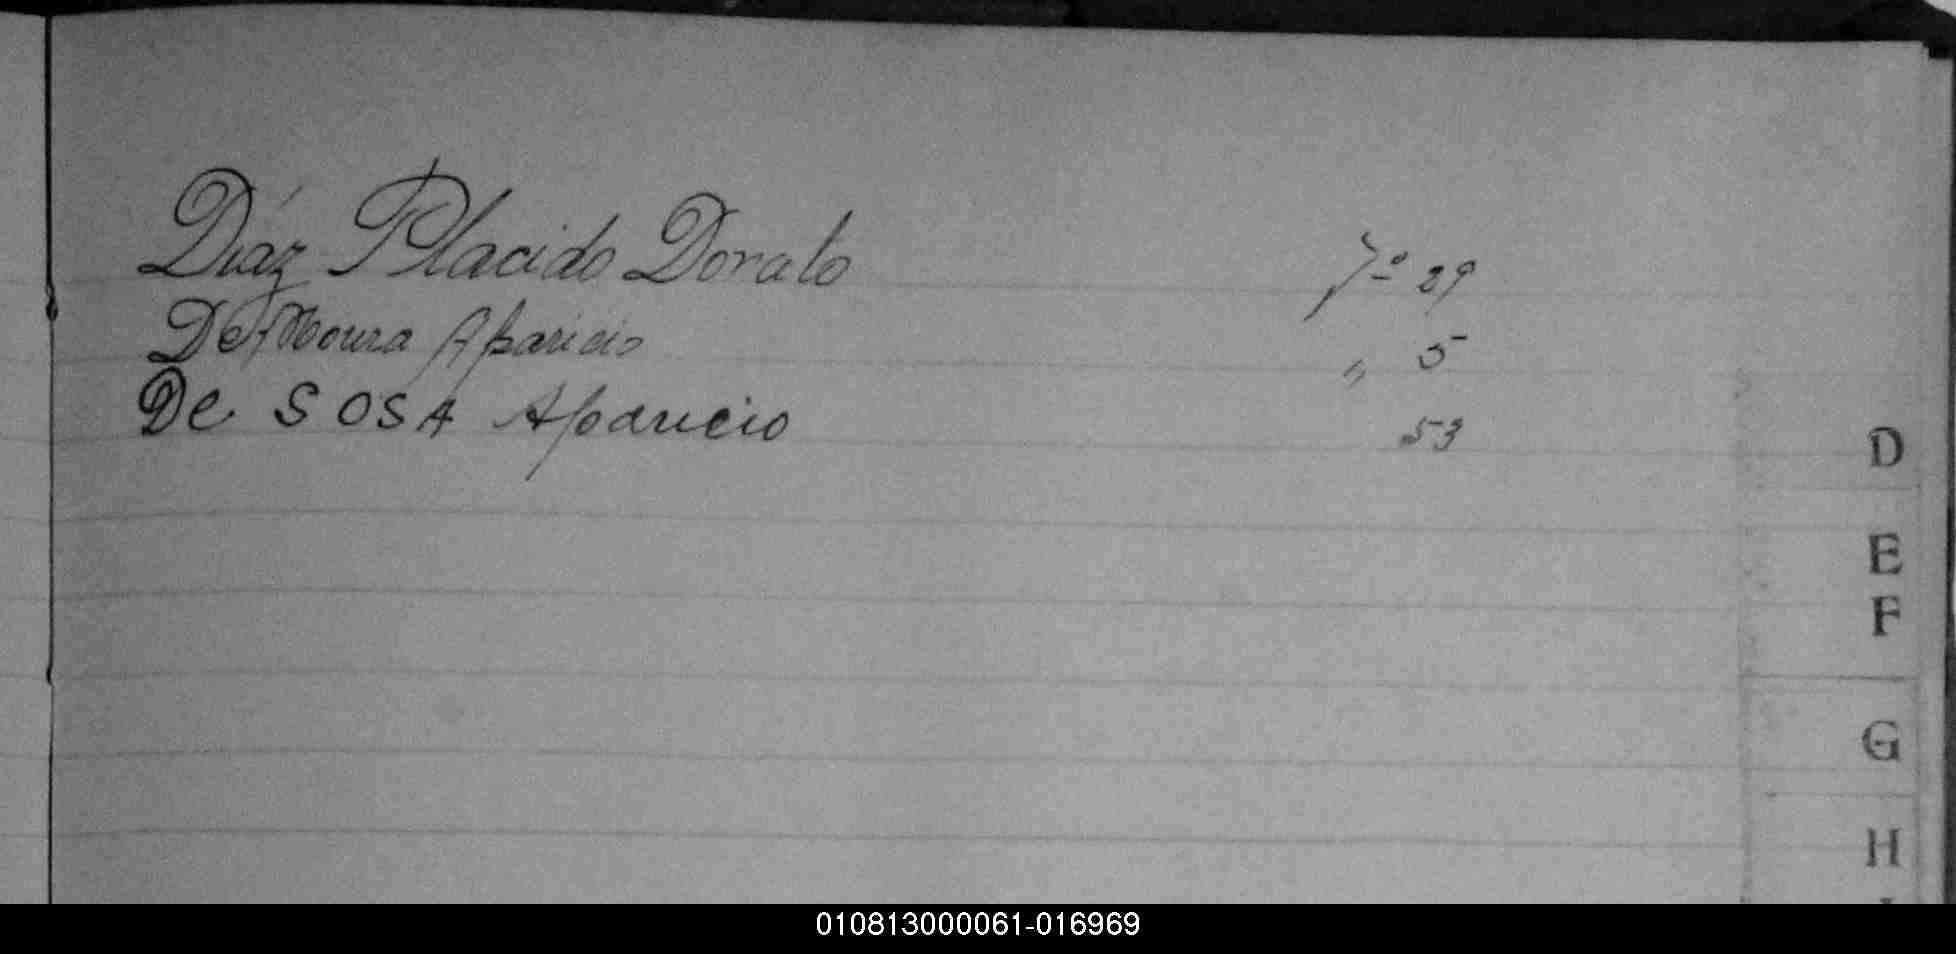 Díaz Placido Dorato 29
De Moura Aparicio " 5
De SOSA Aparicio 53
D
E
F
G
H
010813000061-016969